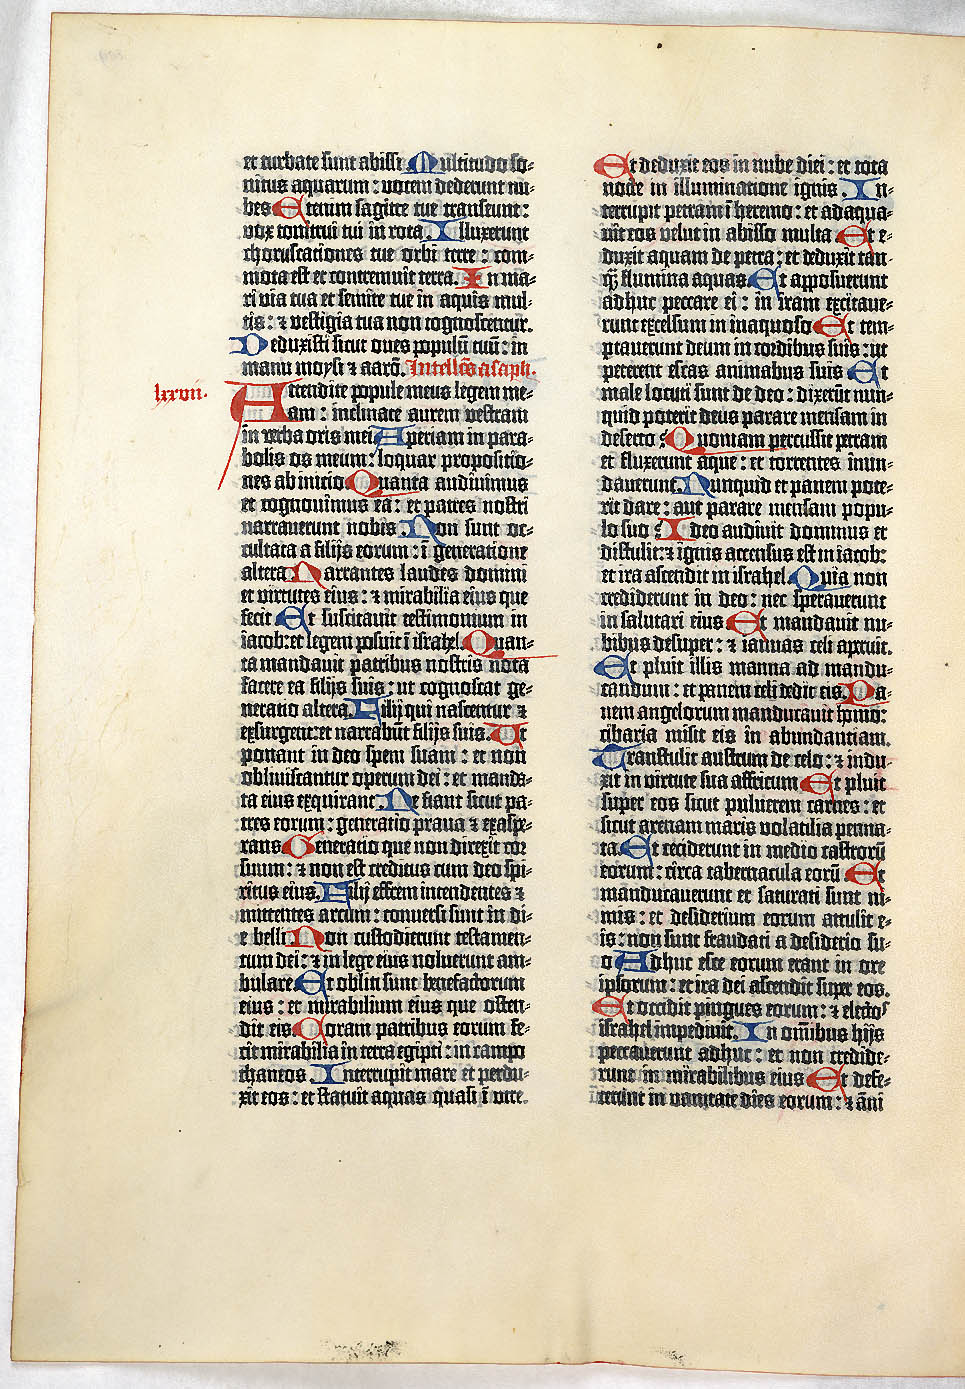 et turbate sunt abissi Multitudo so-
nitus aquarum : vocem dederunt nu-
bes Etenim sagitte tue transeunt :
vox tonitrui tui in rota Illuxerunt
choruscationes tue orbi terre : com-
mota est et contremuit terra. In ma-
ri via tua et semite tue in aquis mul-
tis : et vestigia tua non cognoscentur.
Deduxisti sicut oves populū tuū : in
manu moysi et aarō. Intellc̄s asaph.
lxxvii.
Attendite popule meus legem me-
am : inclinate aurem vestram
in verba oris mei Aperiam in para-
bolis os meum : loquar propositio-
nes ab inicio Quanta audivimus
et cognovimus ea : et patres nostri
narraverunt nobis. Non sunt oc-
cultata a filijs eorum : ī generatione
altera Narrantes laudes domini
et virtutes eius : et mirabilia eius que
fecit Et suscitavit testimonium in
iacob: et legem posuit ī israhel. Quan-
ta mandavit patribus nostris nota
facere ea filijs suis : ut cognoscat ge-
neratio altera. Filij qui nascentur et
exsurgent: et narrabūt filijs suis. Ut
ponant in deo spem suam : et non
obliviscantur operum dei : et manda-
ta eius exquirant. Ne fiant sicut pa-
tres eorum : generatio prava et exaspe-
rans Generatio que non direxit cor
suum : et non est creditus cum deo spi-
ritus eius. Filij effrem intendentes et
mittentes arcum : conversi sunt in di-
e belli Non custodierunt testamen-
tum dei : et in lege eius noluerunt am-
bulare Et obliti sunt benefactorum
eius : et mirabilium eius que osten-
dit eis Coram patribus eorum fe-
cit mirabilia in terra egipti : in campo
thaneos. Interrupit mare et perdu-
xit eos : et statuit aquas quasi ī utre.
Et deduxit eos in nube diei : et tota
nocte in illuminatione ignis. In-
terrupit petram ī heremo : et adaqua-
vit eos velut in abisso multa Et e-
duxit aquam de petra : et deduxit tan-
q̄ flumina aquas Et apposuerunt
adhuc peccare ei : in iram excitave-
runt excelsum in inaquoso Et tem-
ptaverunt deum in cordibus suis : ut
peterent escas animabus suis Et
male locuti sunt de deo : dixerūt nun-
quid poterit deus parare mensam in
deserto : Quoniam percussit petram
et fluxerunt aque : et torrentes inun-
daverunt. Nunquid et panem pote-
rit dare : aut parare mensam popu-
lo suo : Ideo audivit dominus et
distulit: et ignis accensus est in iacob:
et ira ascendit in israhel. Quia non
crediderunt in deo : nec speraverunt
in salutari eius Et mandavit nu-
bibus desuper : et ianuas celi aperuit.
Et pluit illis manna ad mandu-
candum : et panem celi dedit eis. Pa-
nem angelorum manducavit homo:
cibaria misit eis in abundantiam.
Transtulit austrum de celo : et indu-
xit in virtute sua affricum Et pluit
super eos sicut pulverem carnes : et
sicut arenam maris volatilia penna-
ta Et ceciderunt in medio castrorū
eorum : circa tabernacula eorū Et
manducaverunt et saturati sunt ni-
mis : et desiderium eorum attulit e-
is : non sunt fraudati a desiderio su-
o Adhuc esce eorum erant in ore
ipsorum : et ira dei ascendit super eos.
Et occidit pingues eorum : et electos
israhel impedivit. In om̄ibus hijs
peccaverunt adhuc : et non credide-
runt in mirabilibus eius Et defe-
cerunt in vanitate dies eorum : et āni